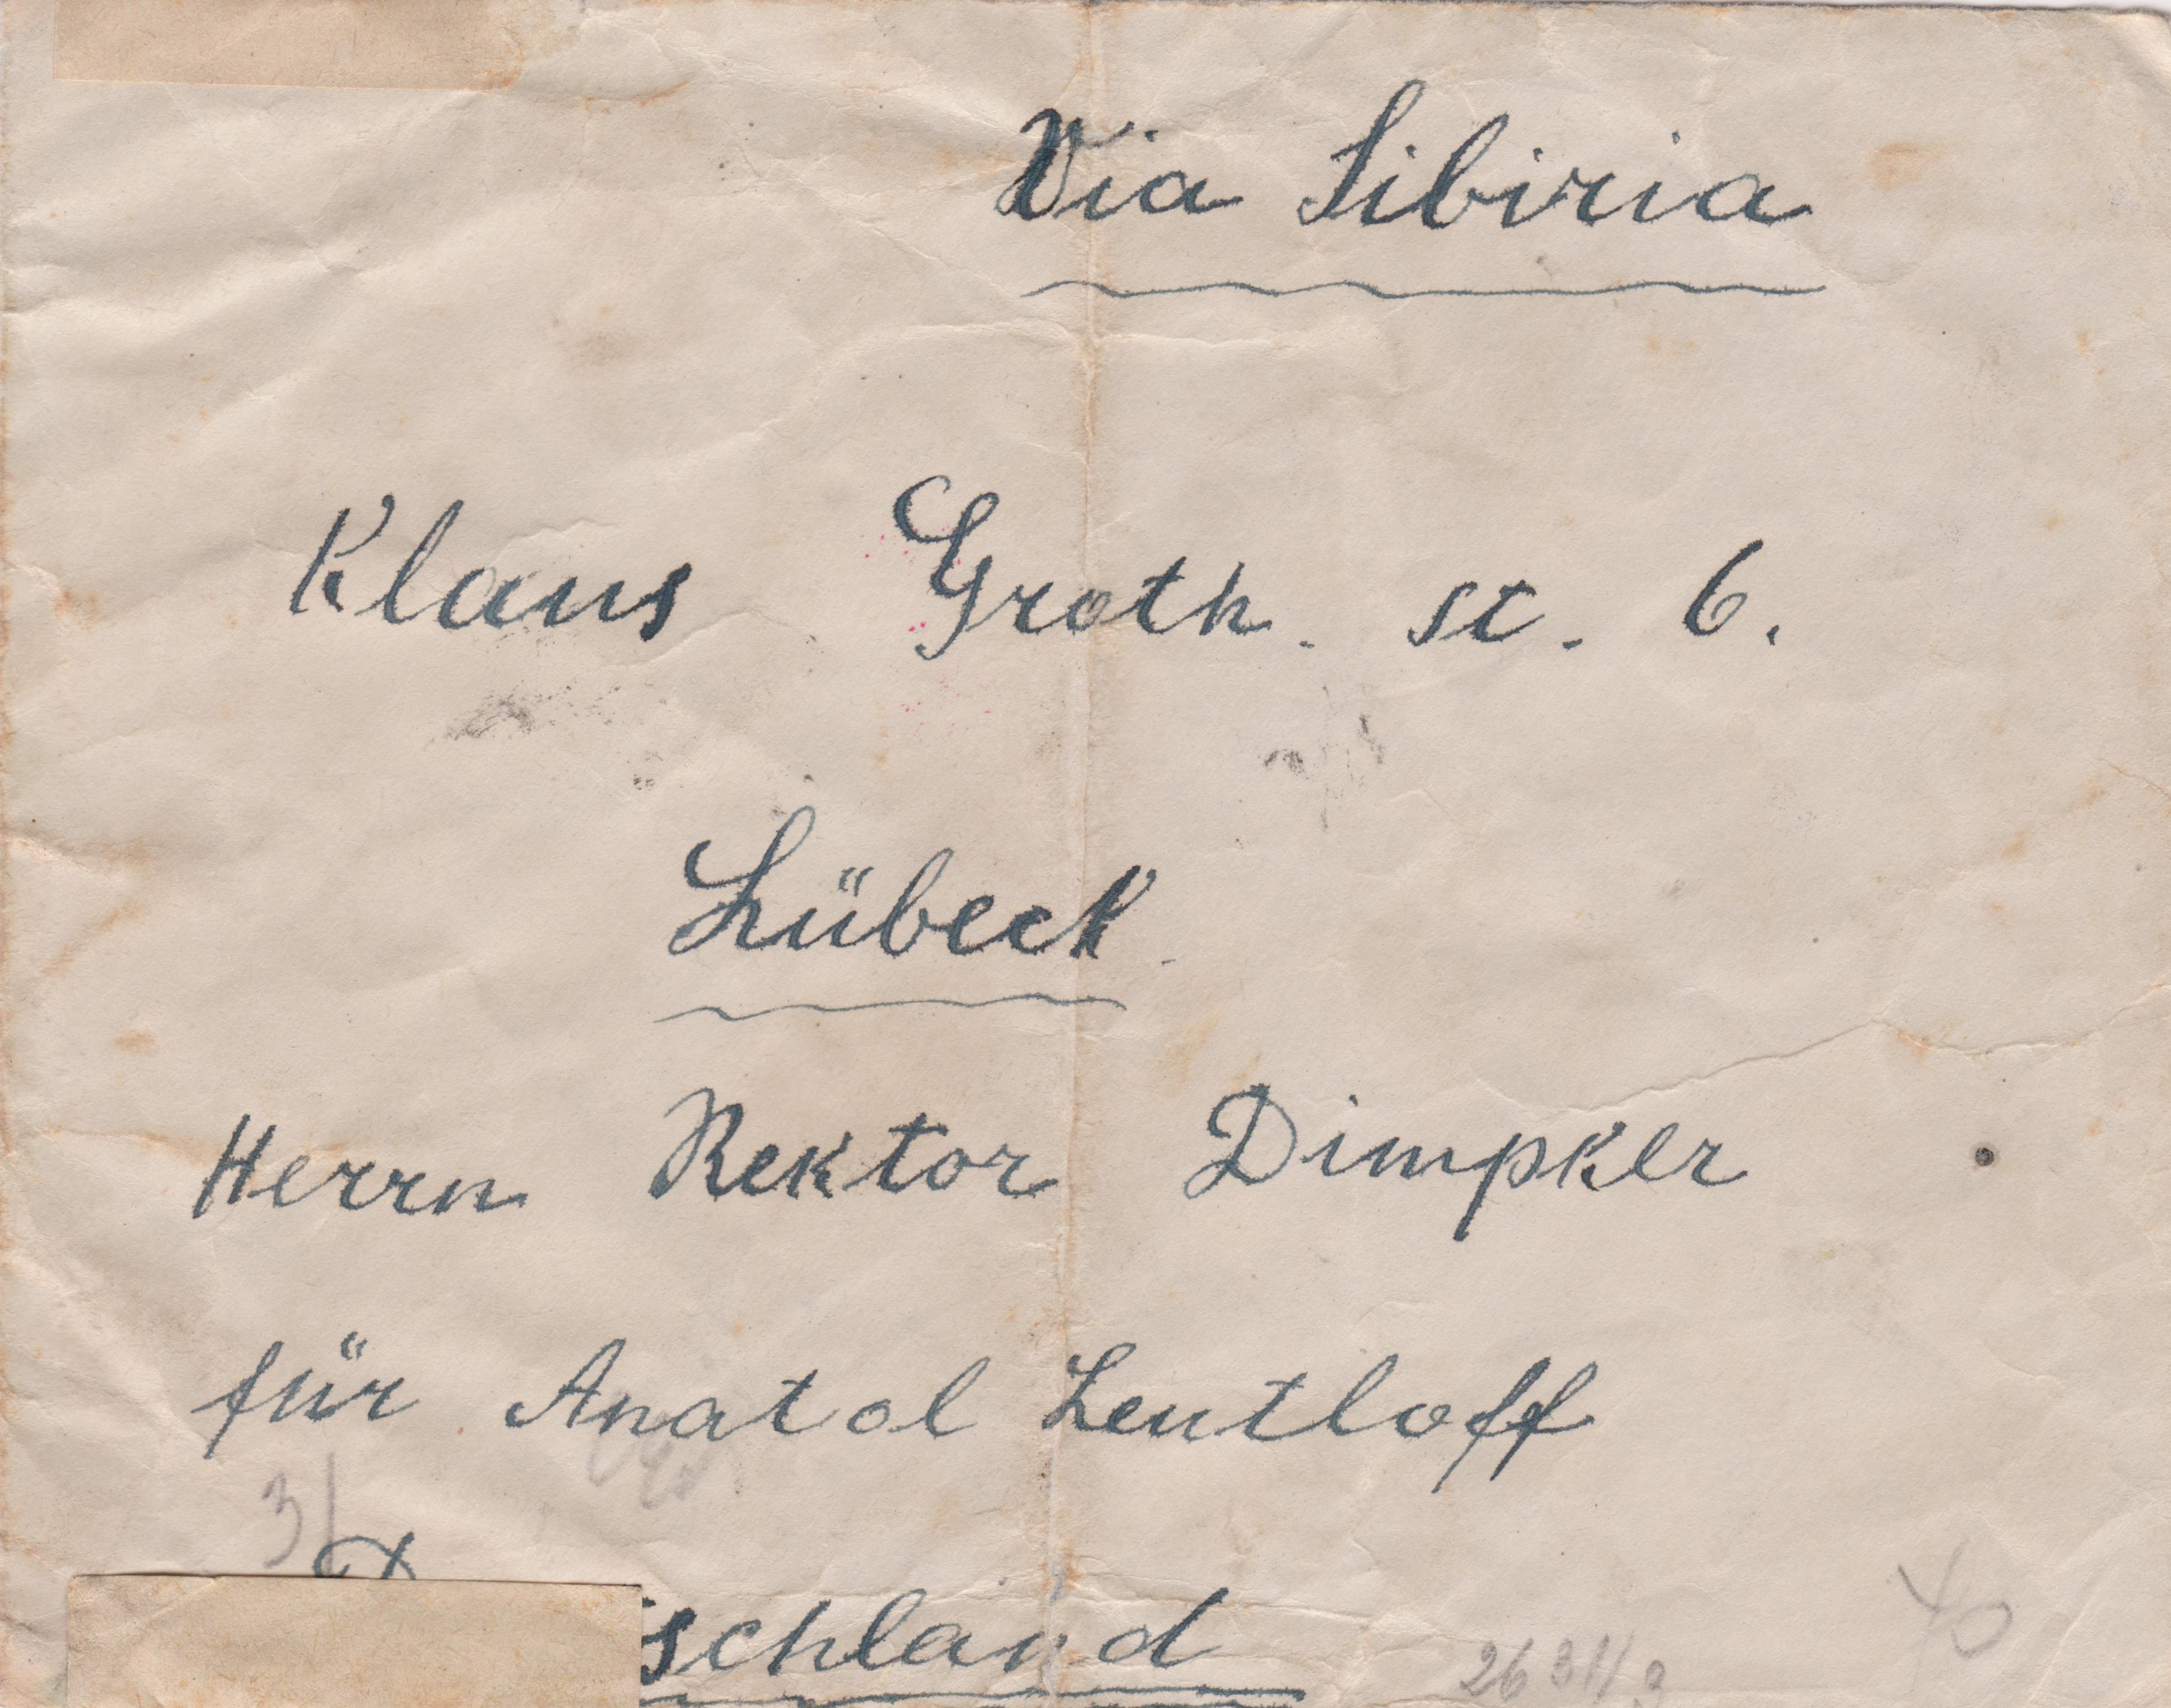 Via Sibiria
Klaus Groth. st. 6.
Lübeck.
Herrn Rektor Dimpker
für Anatol Lentloff
schland